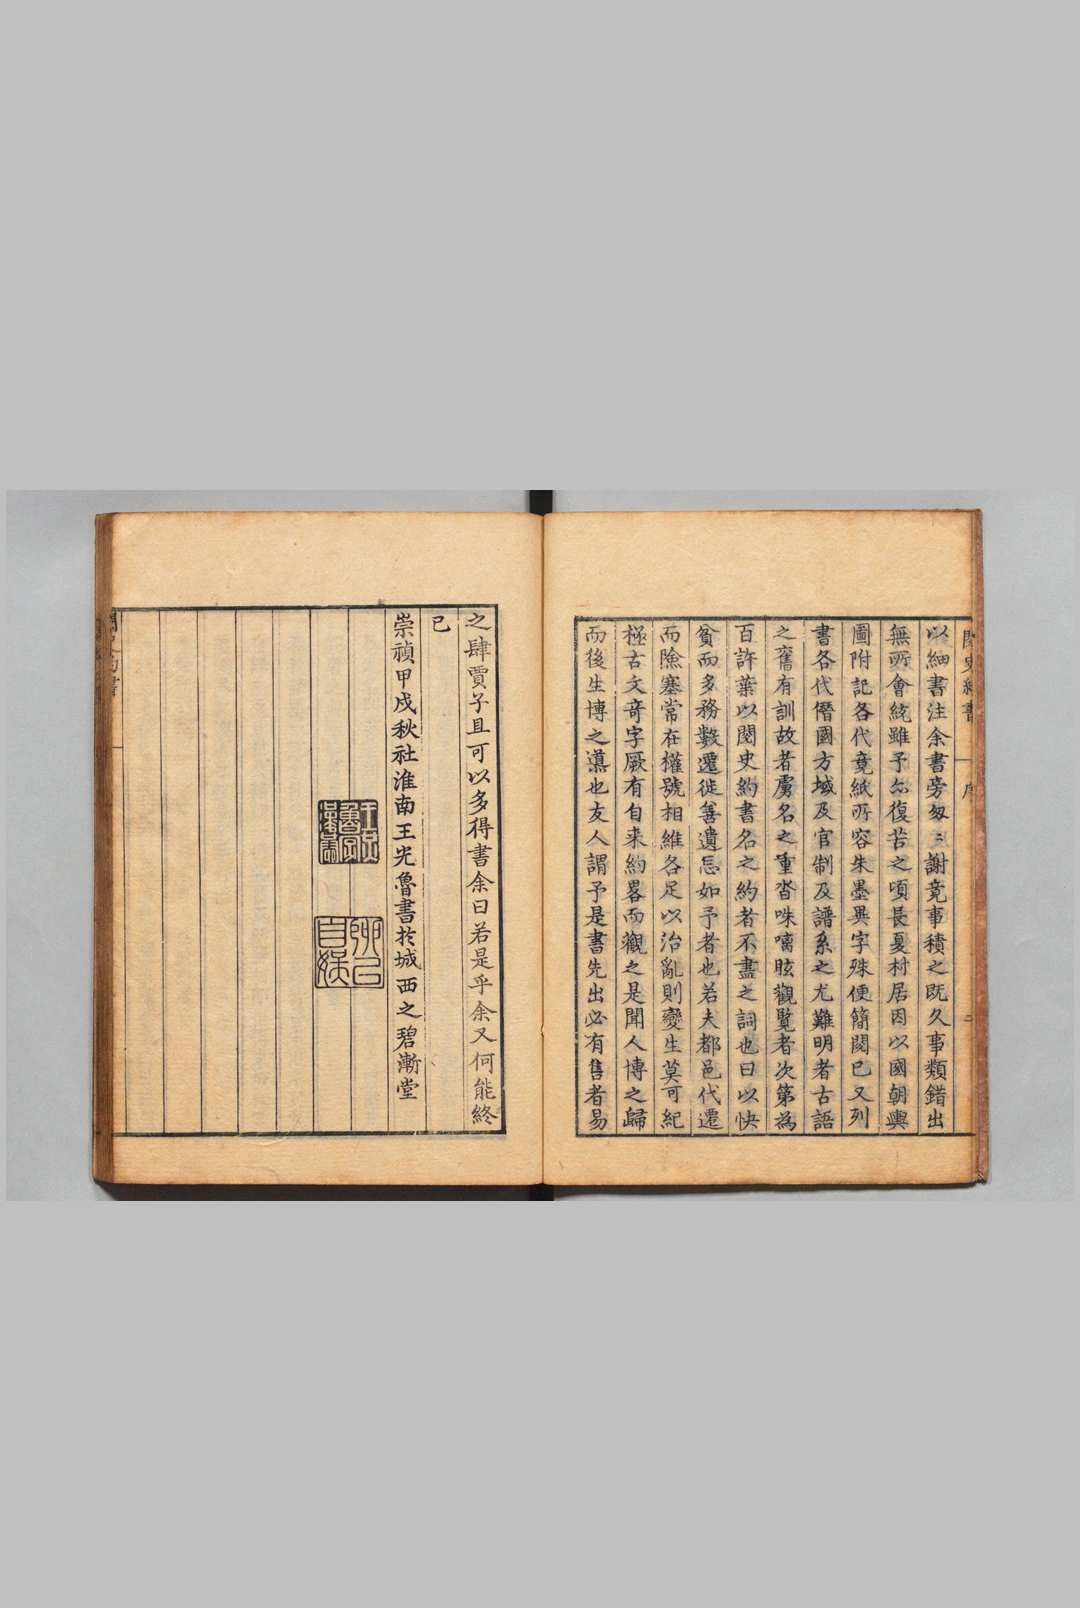 閱史約書
序
二
以細書注余書旁匆〻謝竟事積之既久事類錯出
無所會綂雖予尒復苦之頃長夏村居因以國朝輿
圖附記各代竟紙所容朱墨異字殊便簡閱已又列
書各代僭國方域及官制及譜系之尤難明者古語
之舊有訓故者虜名之重沓咮𠺕眩觀覧者次第為
百許葉以閱史約書名之約者不盡之詞也曰以快
貧而多務數遷徙善遺忘如予者也若夫都邑代遷
而險塞常在權號相維各足以治亂則變生莫可紀
極古文竒字厥有自来約畧而觀之是聞人博之歸
而後生博之漸也友人謂予是書先出必有售者易
之肆賈子且可以多得書余曰若是乎余又何能終
已
崇禎甲戌秋社淮南王光魯書扵城西之碧漸堂
聊已自娛